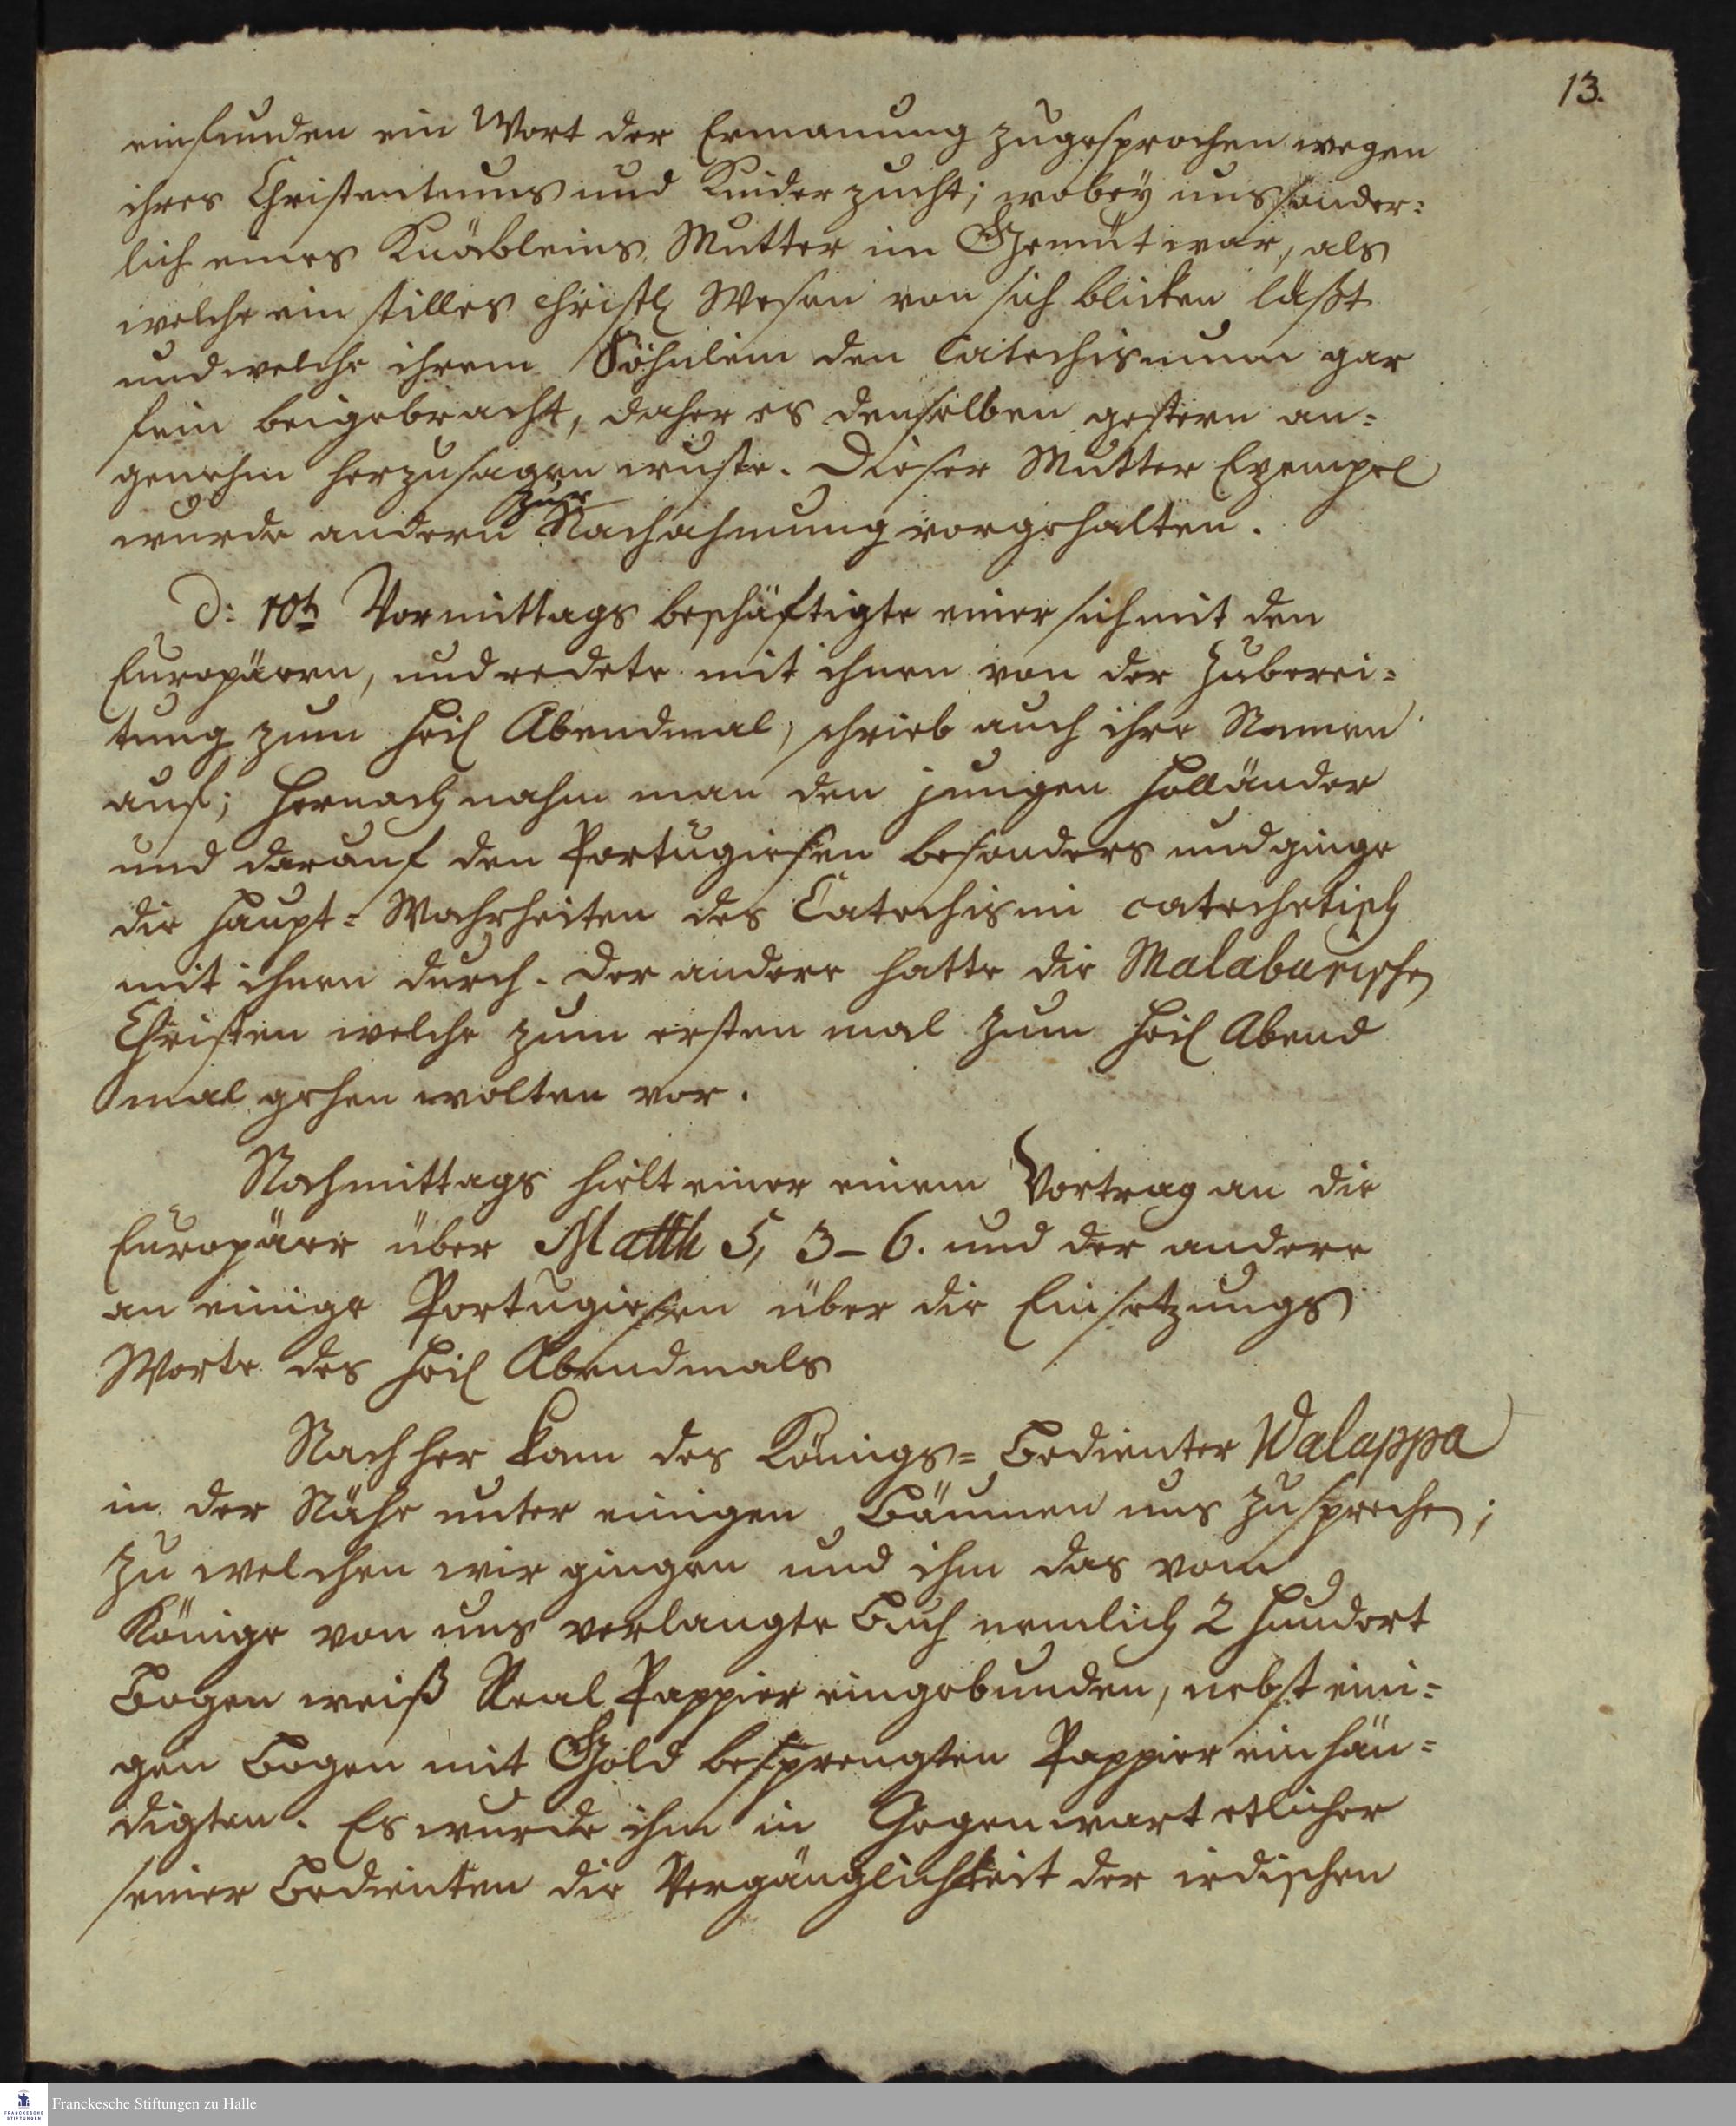 13.
einfunden ein Wort der Ermanung zugesprochen wegen
ihres Christentums und Kinder zucht; wobey uns sonder=
lich eines Knäbleins Mutter im Gemüt war, als
welche ein stilles christl Wesen von sich blicken läßt
und welche ihrem Söhnlein den Catechismum gar
fein beigebracht, daher es denselben gestern an=
genehm herzusagen wuste. Dieser Mutter Exempel
wurde andern zur Nachahmung vorgehalten.
d: 10t Vormittags beschäftigte einer sich mit den
Europäern, und redete mit ihnen von der Zuberei=
tung zum heil Abendmal, schrieb auch ihre Namen
auf; hernach nahm man den jungen Holländer
und darauf den Portugiesen besonders und ginge
die Haupt=Wahrheiten des Catechismi catechetisch
mit ihnen durch. Der andere hatte die Malabarische
Christen welche zum ersten mal zum heil Abend
mal gehen wolten vor.
Nachmittags hielt einer einem Vortrag an die
Europäer über Matth 5, 3-6. und der andere
an einige Portugiesen über die Einsetzungs
Worte des heil Abendmals
Nach her kam des Königs=Bedienter Walappa
in der Nähe unter einigen Bäumen uns zu sprechen;
zu welchen wir gingen und ihm das vom
Könige von uns verlangte Buch nemlich 2 hundert
Bogen weiß Real Pappier eingebunden, nebst eini=
gen Bogen mit Gold besprengten Pappier einhän=
digten. Es wurde ihm in Gegenwart etlicher
seiner Bedienten die Vergänglichkeit der irdischen
Franckesche Stiftungen zu Halle
FRANCKESCHE
STIFTUNGEN